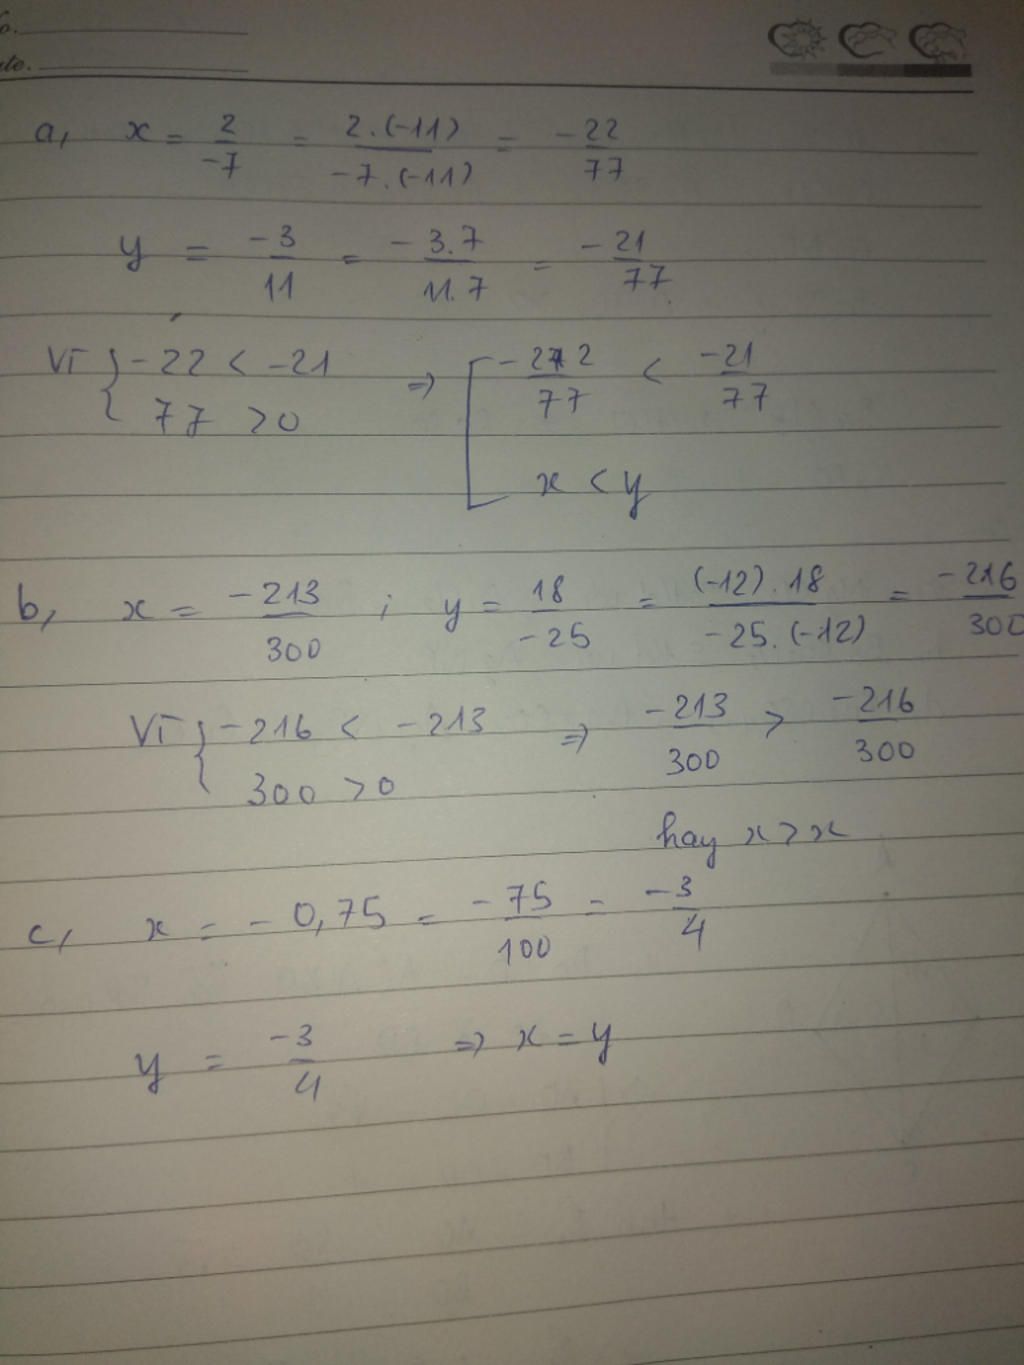 o.
ate.
a, x = 2/-7 = 2.(-11)/-7.(-11) = -22/77
y = -3/11 = -3.7/11.7 = -21/77
Vì { -22 < -21 ; 77 > 0 => [ -22/77 < -21/77
x < y
b, x = -213/300 ; y = 18/-25 = (-12).18/-25.(-12) = -216/300
Vì { -216 < -213 ; 300 > 0 => -213/300 > -216/300
hay x > x
c, x = -0,75 = -75/100 = -3/4
y = -3/4 => x = y